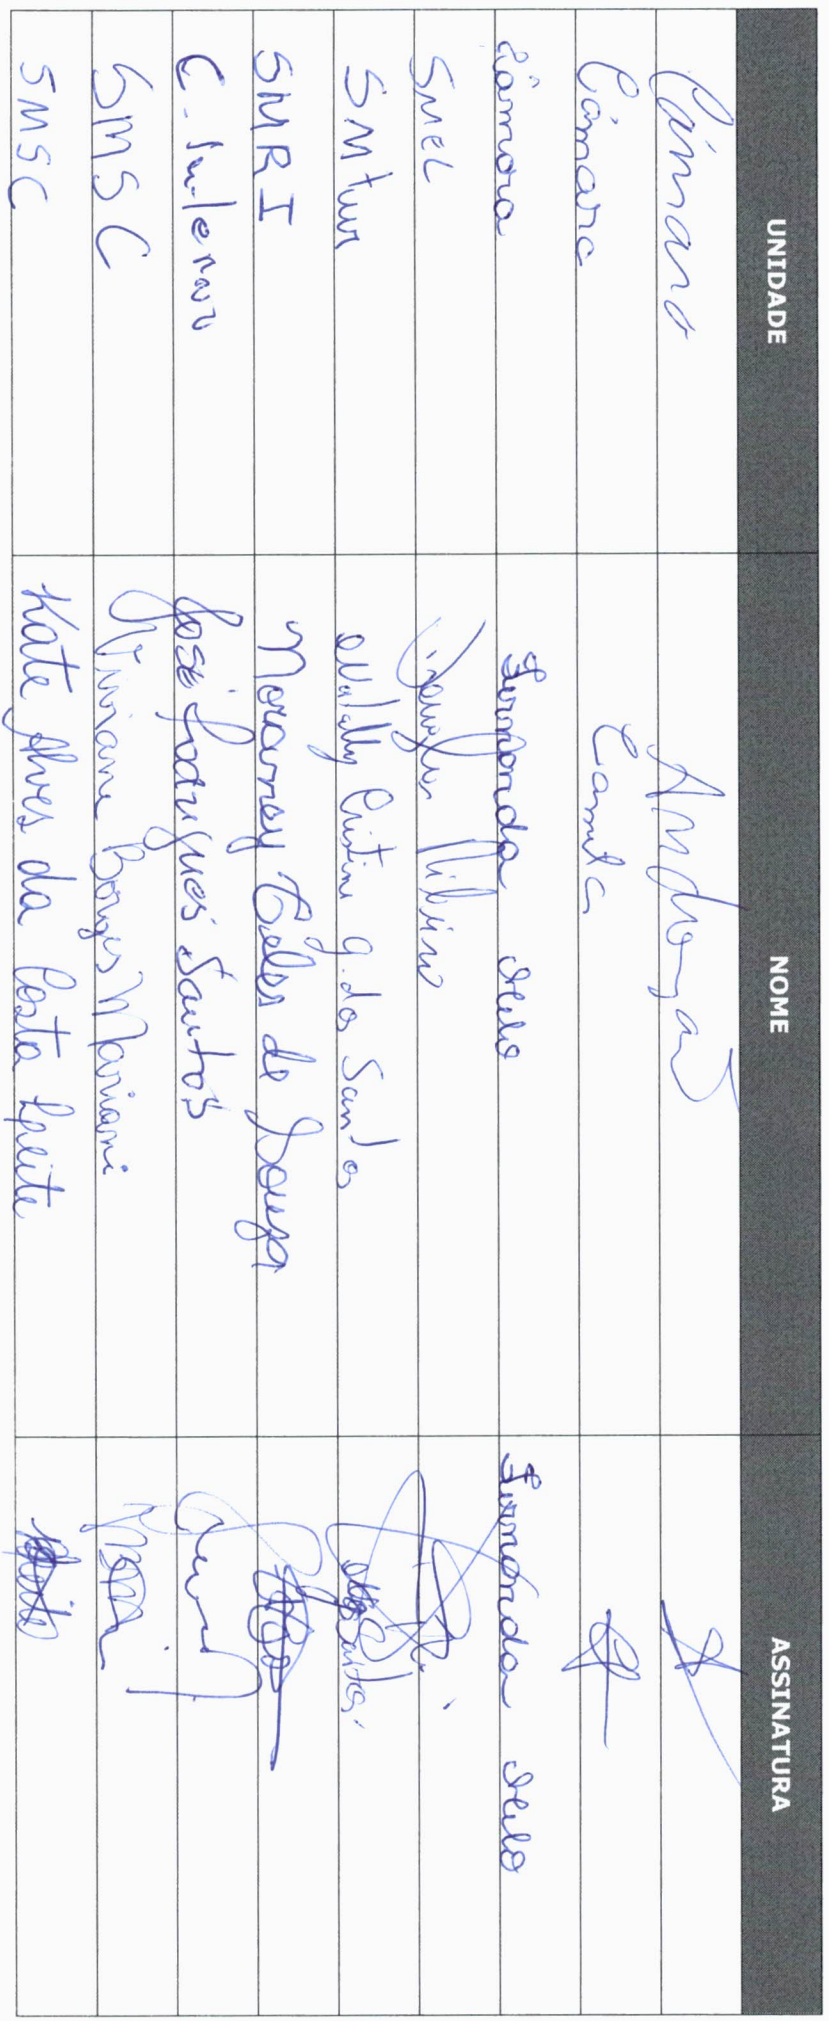 UNIDADE NOME ASSINATURA
Câmara
Câmara Camila
Câmara Fernanda Melo Fernanda Melo
SMEL Douglas Ribeiro
SMtur Natally Cristine G. dos Santos
SMRI Noramey Teles de Souza
C. Interno José Rodrigues Santos
SMSC Viviane Borges Mariani
SMSC Kate Alves da Costa Leite